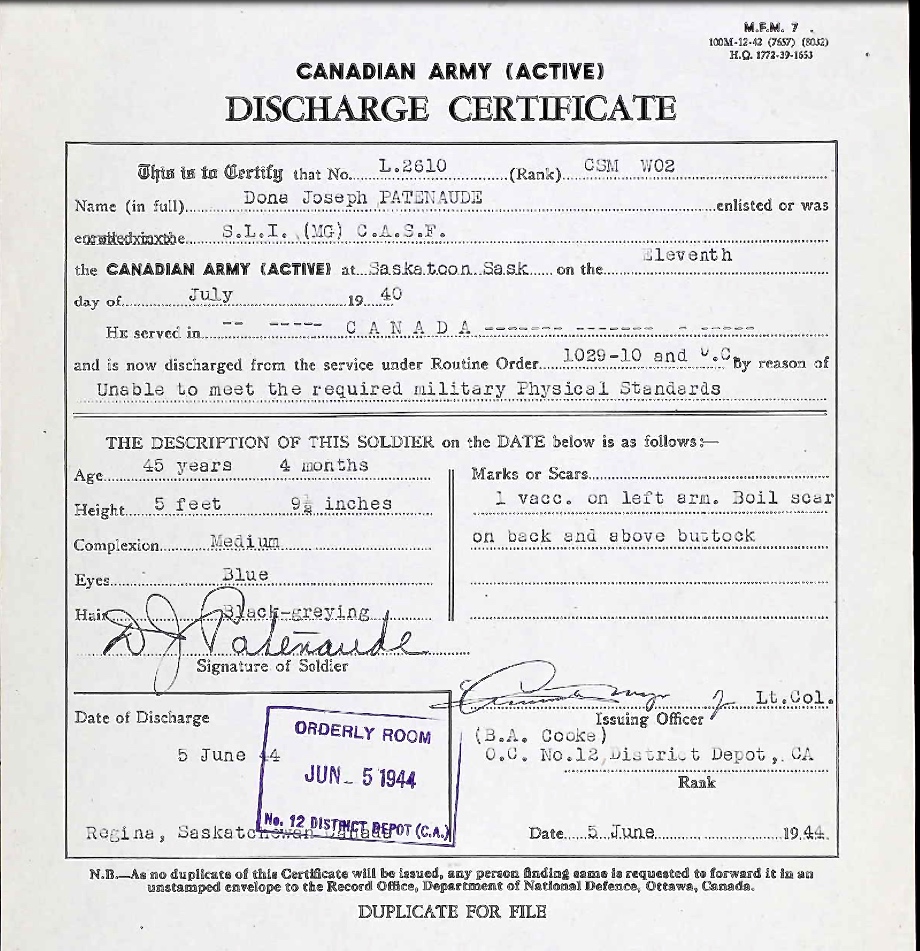 M.F.M. 7
100M-12-42 (7657) (8032)
H.Q. 1772-39-1653
CANADIAN ARMY (ACTIVE)
DISCHARGE CERTIFICATE
This is to Certify that No. L.2610 (Rank) CSM WO2
Name (in full) Dona Joseph PATENAUDE enlisted or was
enrolled in the S.L.I. (MG) C.A.S.F.
the CANADIAN ARMY (ACTIVE) at Saskatoon Sask on the Eleventh
day of July 19 40
HE served in -- ----- C A N A D A -------- ------- - -----
and is now discharged from the service under Routine Order 1029-10 and by reason of
Unable to meet the required military Physical Standards
THE DESCRIPTION OF THIS SOLDIER on the DATE below is as follows:—
Age 45 years 4 months
Height 5 feet 9½ inches
Complexion Medium
Eyes Blue
Hair Black-greying
D J Patenaude
Signature of Soldier
Marks or Scars
1 vacc. on left arm. Boil scar
on back and above buttock
Lt.Col.
Issuing Officer
(B.A. Cooke)
O.C. No.12 District Depot, CA
Rank
Date of Discharge
5 June 44
ORDERLY ROOM
JUN - 5 1944
No. 12 DISTRICT DEPOT (C.A.)
Regina, Saskatchewan Canada
Date 5 June 1944
N.B.—As no duplicate of this Certificate will be issued, any person finding same is requested to forward it in an
unstamped envelope to the Record Office, Department of National Defence, Ottawa, Canada.
DUPLICATE FOR FILE